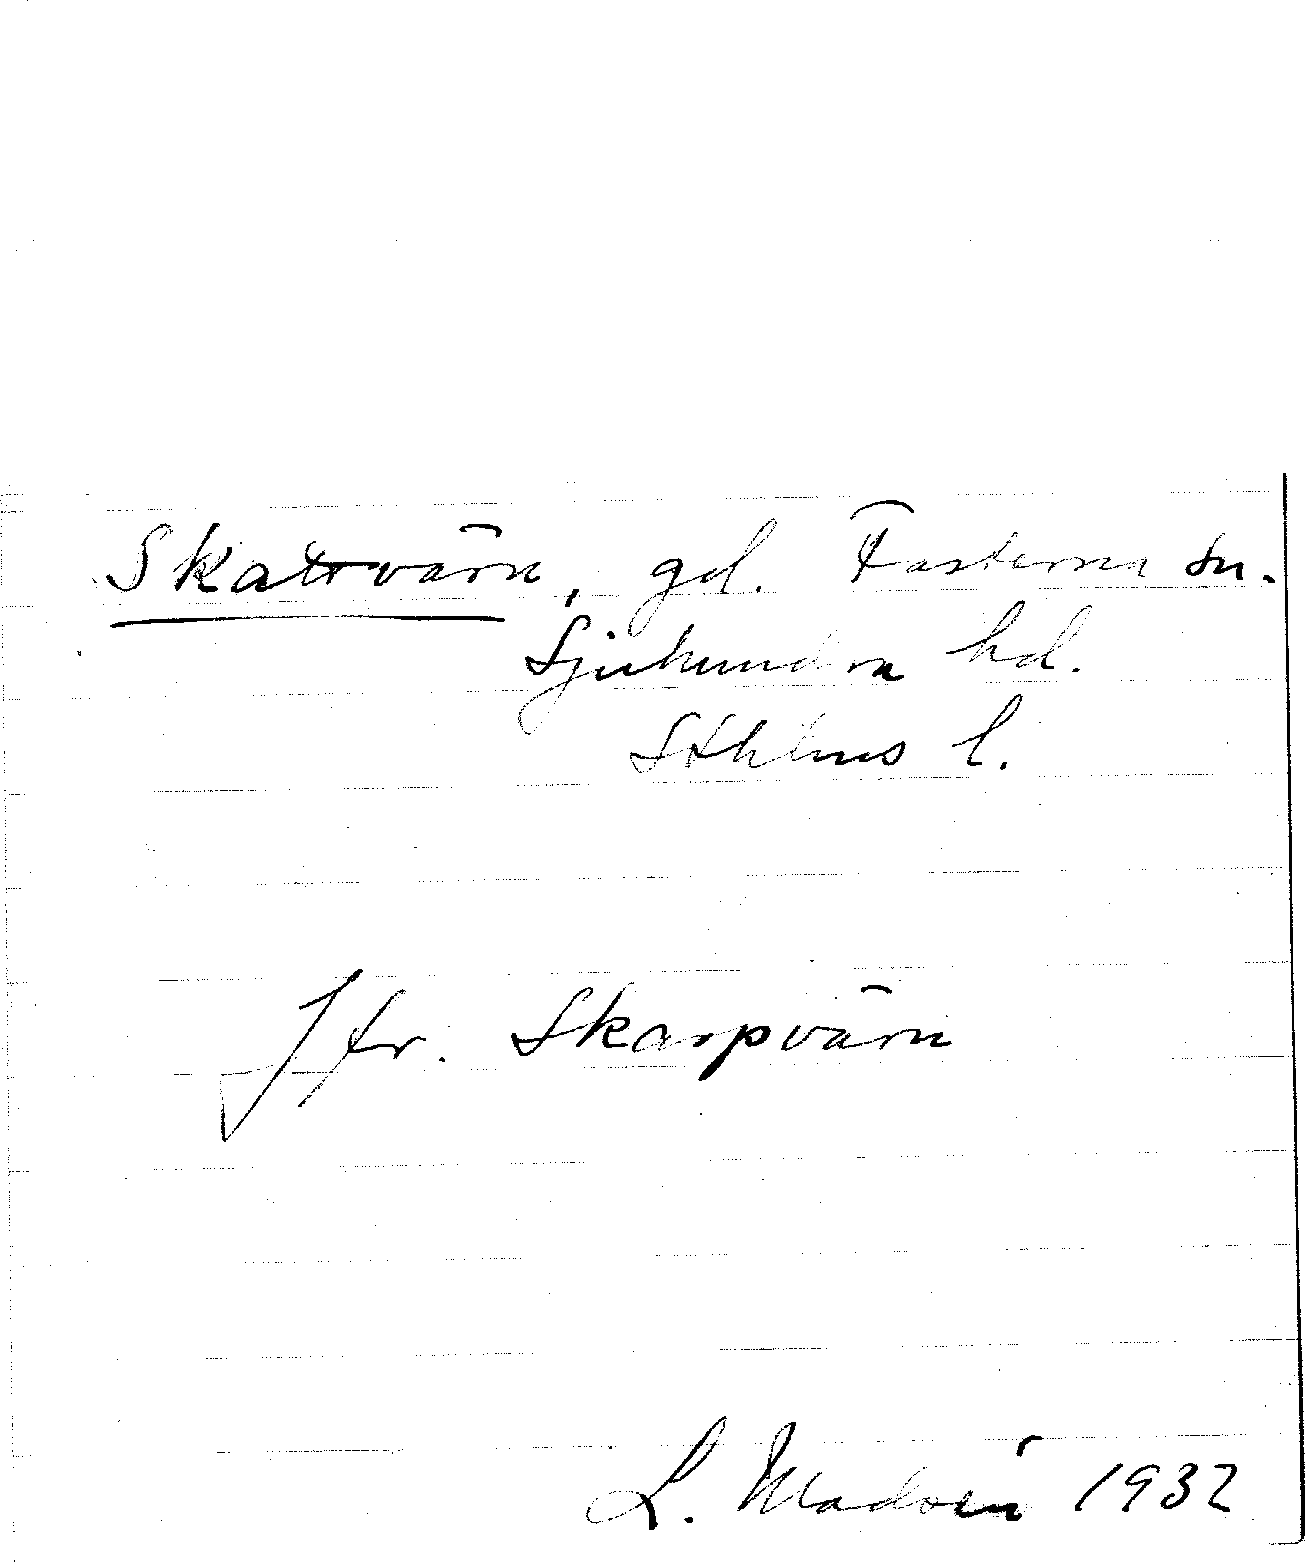 Skattvärn, gd. Fasterna sn.
Sjuhundra hd.
Sthlms l.
Jfr. Skarpvärn
L. Modvén 1932